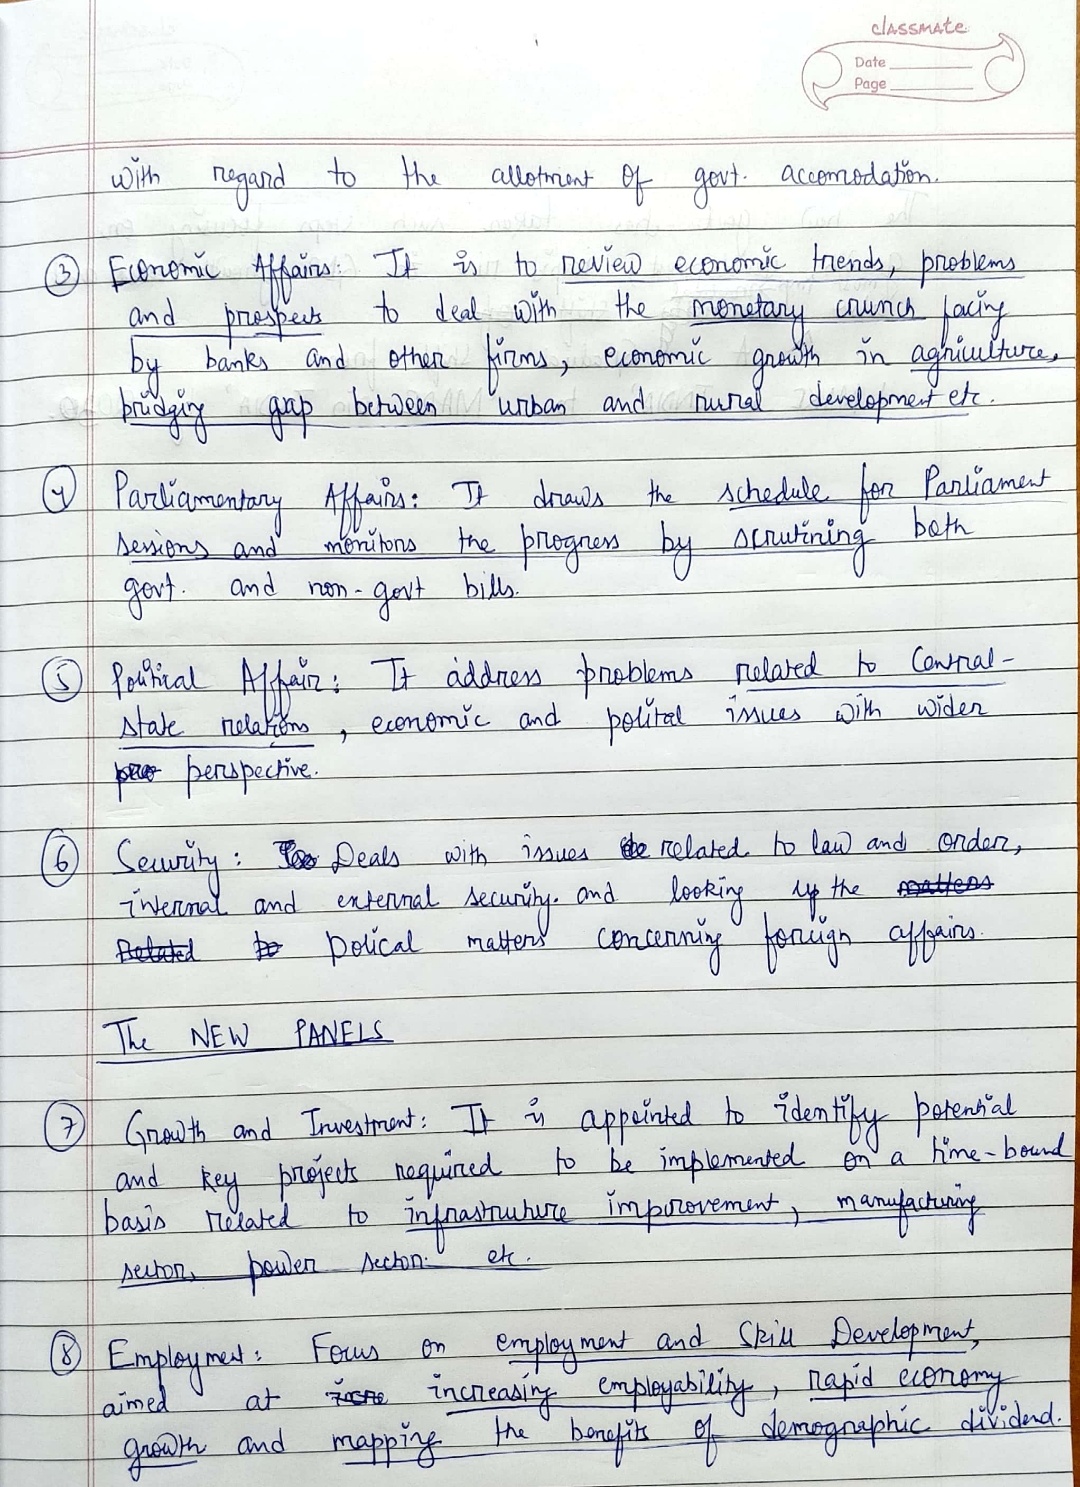 classmate
Date
Page
with regard to the allotment of govt. accomodation.
③ Economic Affairs: It is to review economic trends, problems
and prospects to deal with the monetary crunch facing
by banks and other firms, economic growth in agriculture,
bridging gap between urban and rural development etc.
④ Parliamentary Affairs: It draws the schedule for Parliament
sessions and monitors the progress by scrutining both
govt. and non-govt bills.
⑤ Political Affair: It address problems related to Central-
state relations, economic and polital issues with wider
perspective.
⑥ Security: Deals with issues related to law and order,
internal and external security. and looking up the matters
Related to polical matters concerning foriign affairs.
The NEW PANELS
⑦ Growth and Investment: It is appointed to identify potential
and key projects required to be implemented on a time-bound
basis related to infrastruture improvement, manufacturing
sector, power sector. etc.
⑧ Employment: Focus on employment and Skill Development,
aimed at increasing employability, rapid economy
growth and mapping the benefits of demographic dividend.